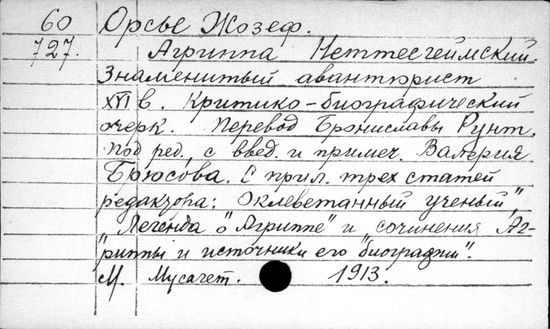 60 Орсье Жозеф.
727. Агриппа Неттесгеймский.
Знаменитый авантюрист
XVI в. Критико-биографический
очерк. Перевод Брониславы Рунт.
Под ред., с введ. и примеч. Валерия
Брюсова. С прил. трех статей
редактора: Оклеветанный ученый",
„Легенда о Агриппе" и „сочинения Аг-
риппы и источники его "биографии".
М. Мусагет. 1913.